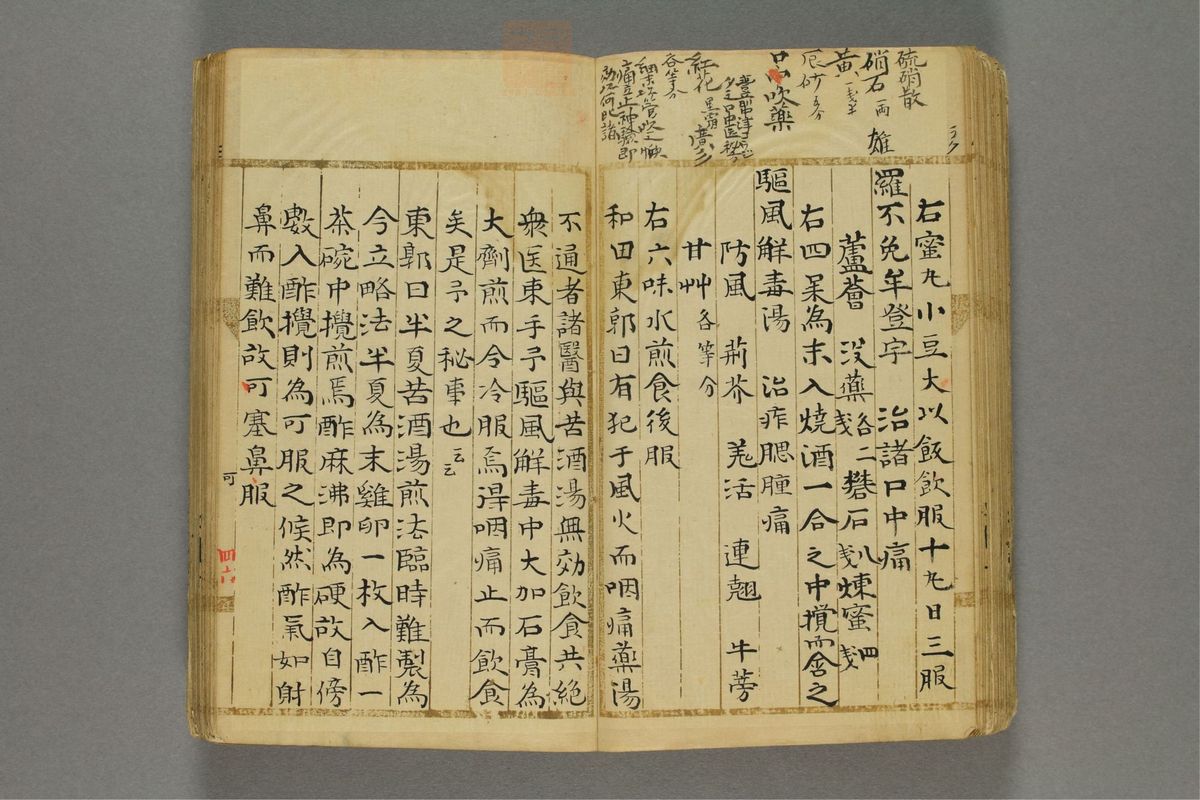 硫硝散
硝石 一両 雄
黄 一戔半
辰砂 五分
口吹薬
紅花 黒霜
各等分
右蜜丸小豆大以飯飲服十丸日三服
羅不免牟登字 治諸口中痛
蘆薈 没薬 各二戔 礬石 八戔 煉蜜 四戔
右四味為末入焼酒一合之中攪而含之
驅風解毒湯 治痄腮腫痛
防風 荊芥 羌活 連翹 牛蒡
甘艸 各等分
右六味水煎食後服
和田東郭曰有犯于風火而咽痛薬湯
不通者諸醫與苦酒湯無効飲食共絶
衆医束手予驅風解毒中大加石膏為
大劑煎而令冷服焉得咽痛止而飲食
矣是予之秘事也云云
東郭曰半夏苦酒湯煎法臨時難製為
今立略法半夏為末雞卵一枚入酢一
茶碗中攪煎焉酢麻沸即為硬故自傍
數入酢攪則為可服之候然酢氣如射
鼻而難飲故可塞鼻服
可
四十